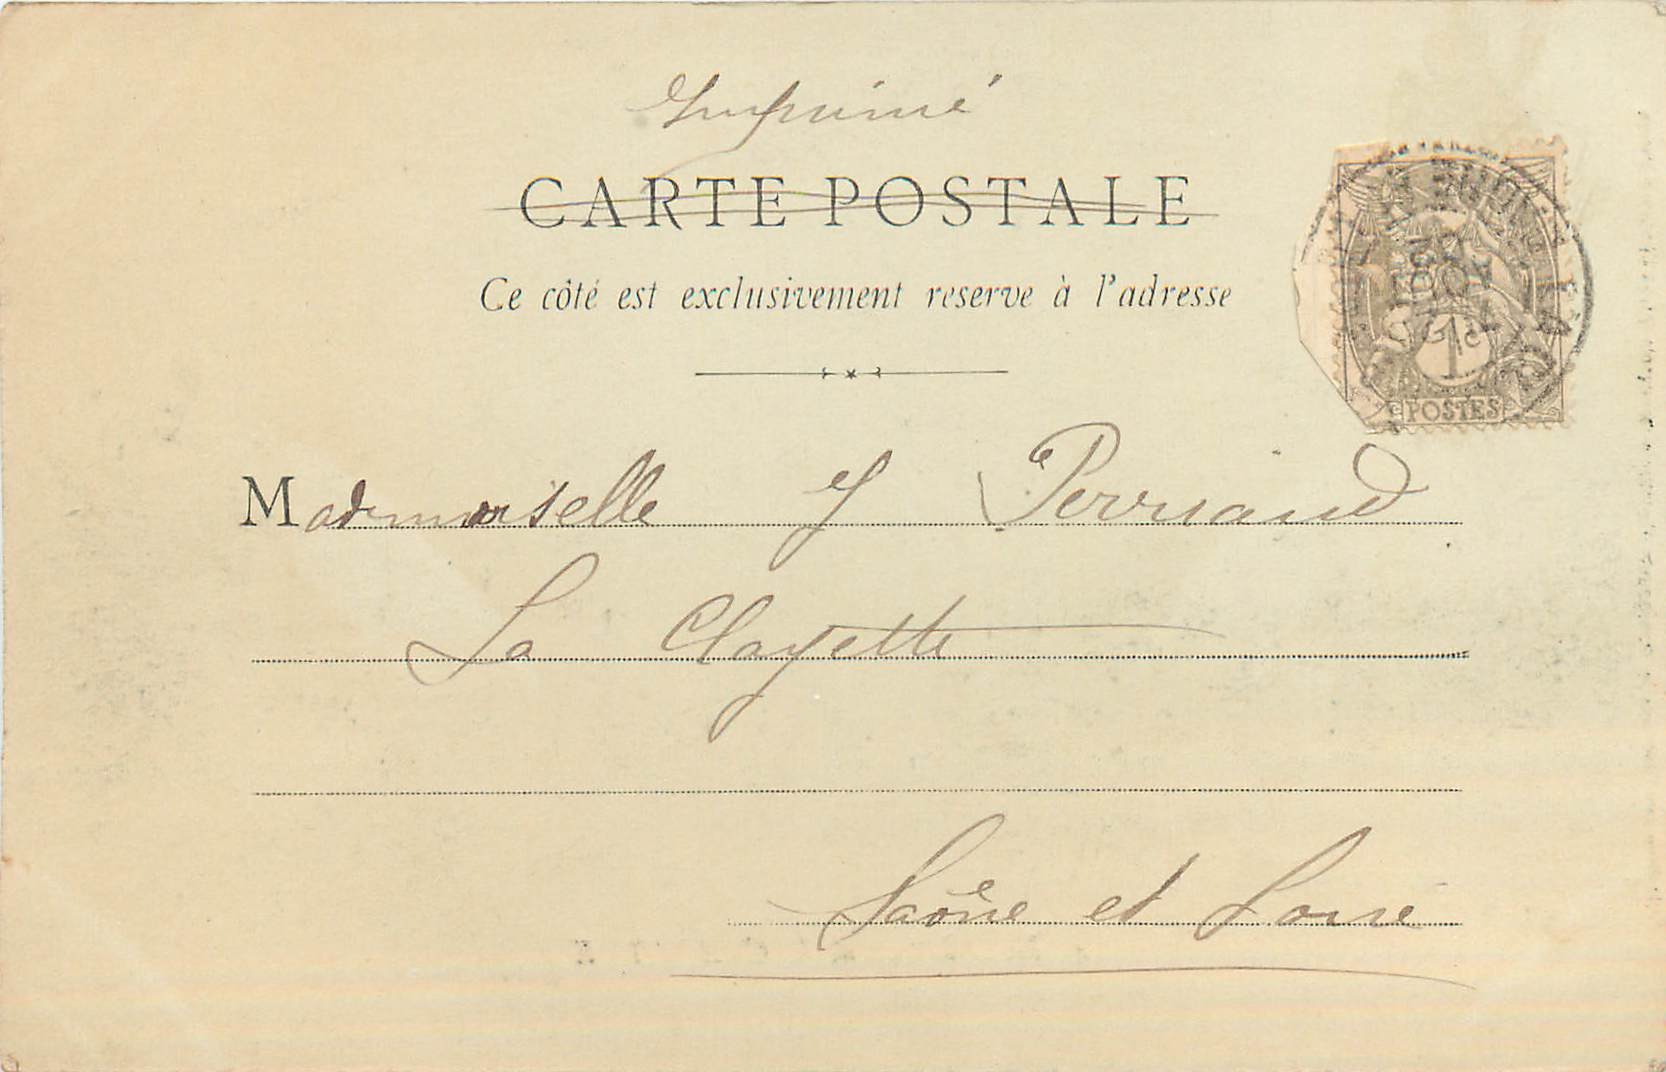 Imprimé
CARTE POSTALE
Ce côté est exclusivement reserve à l'adresse
Mademoiselle J Perriaud
La Clayette
Saône et Loire
1
POSTES